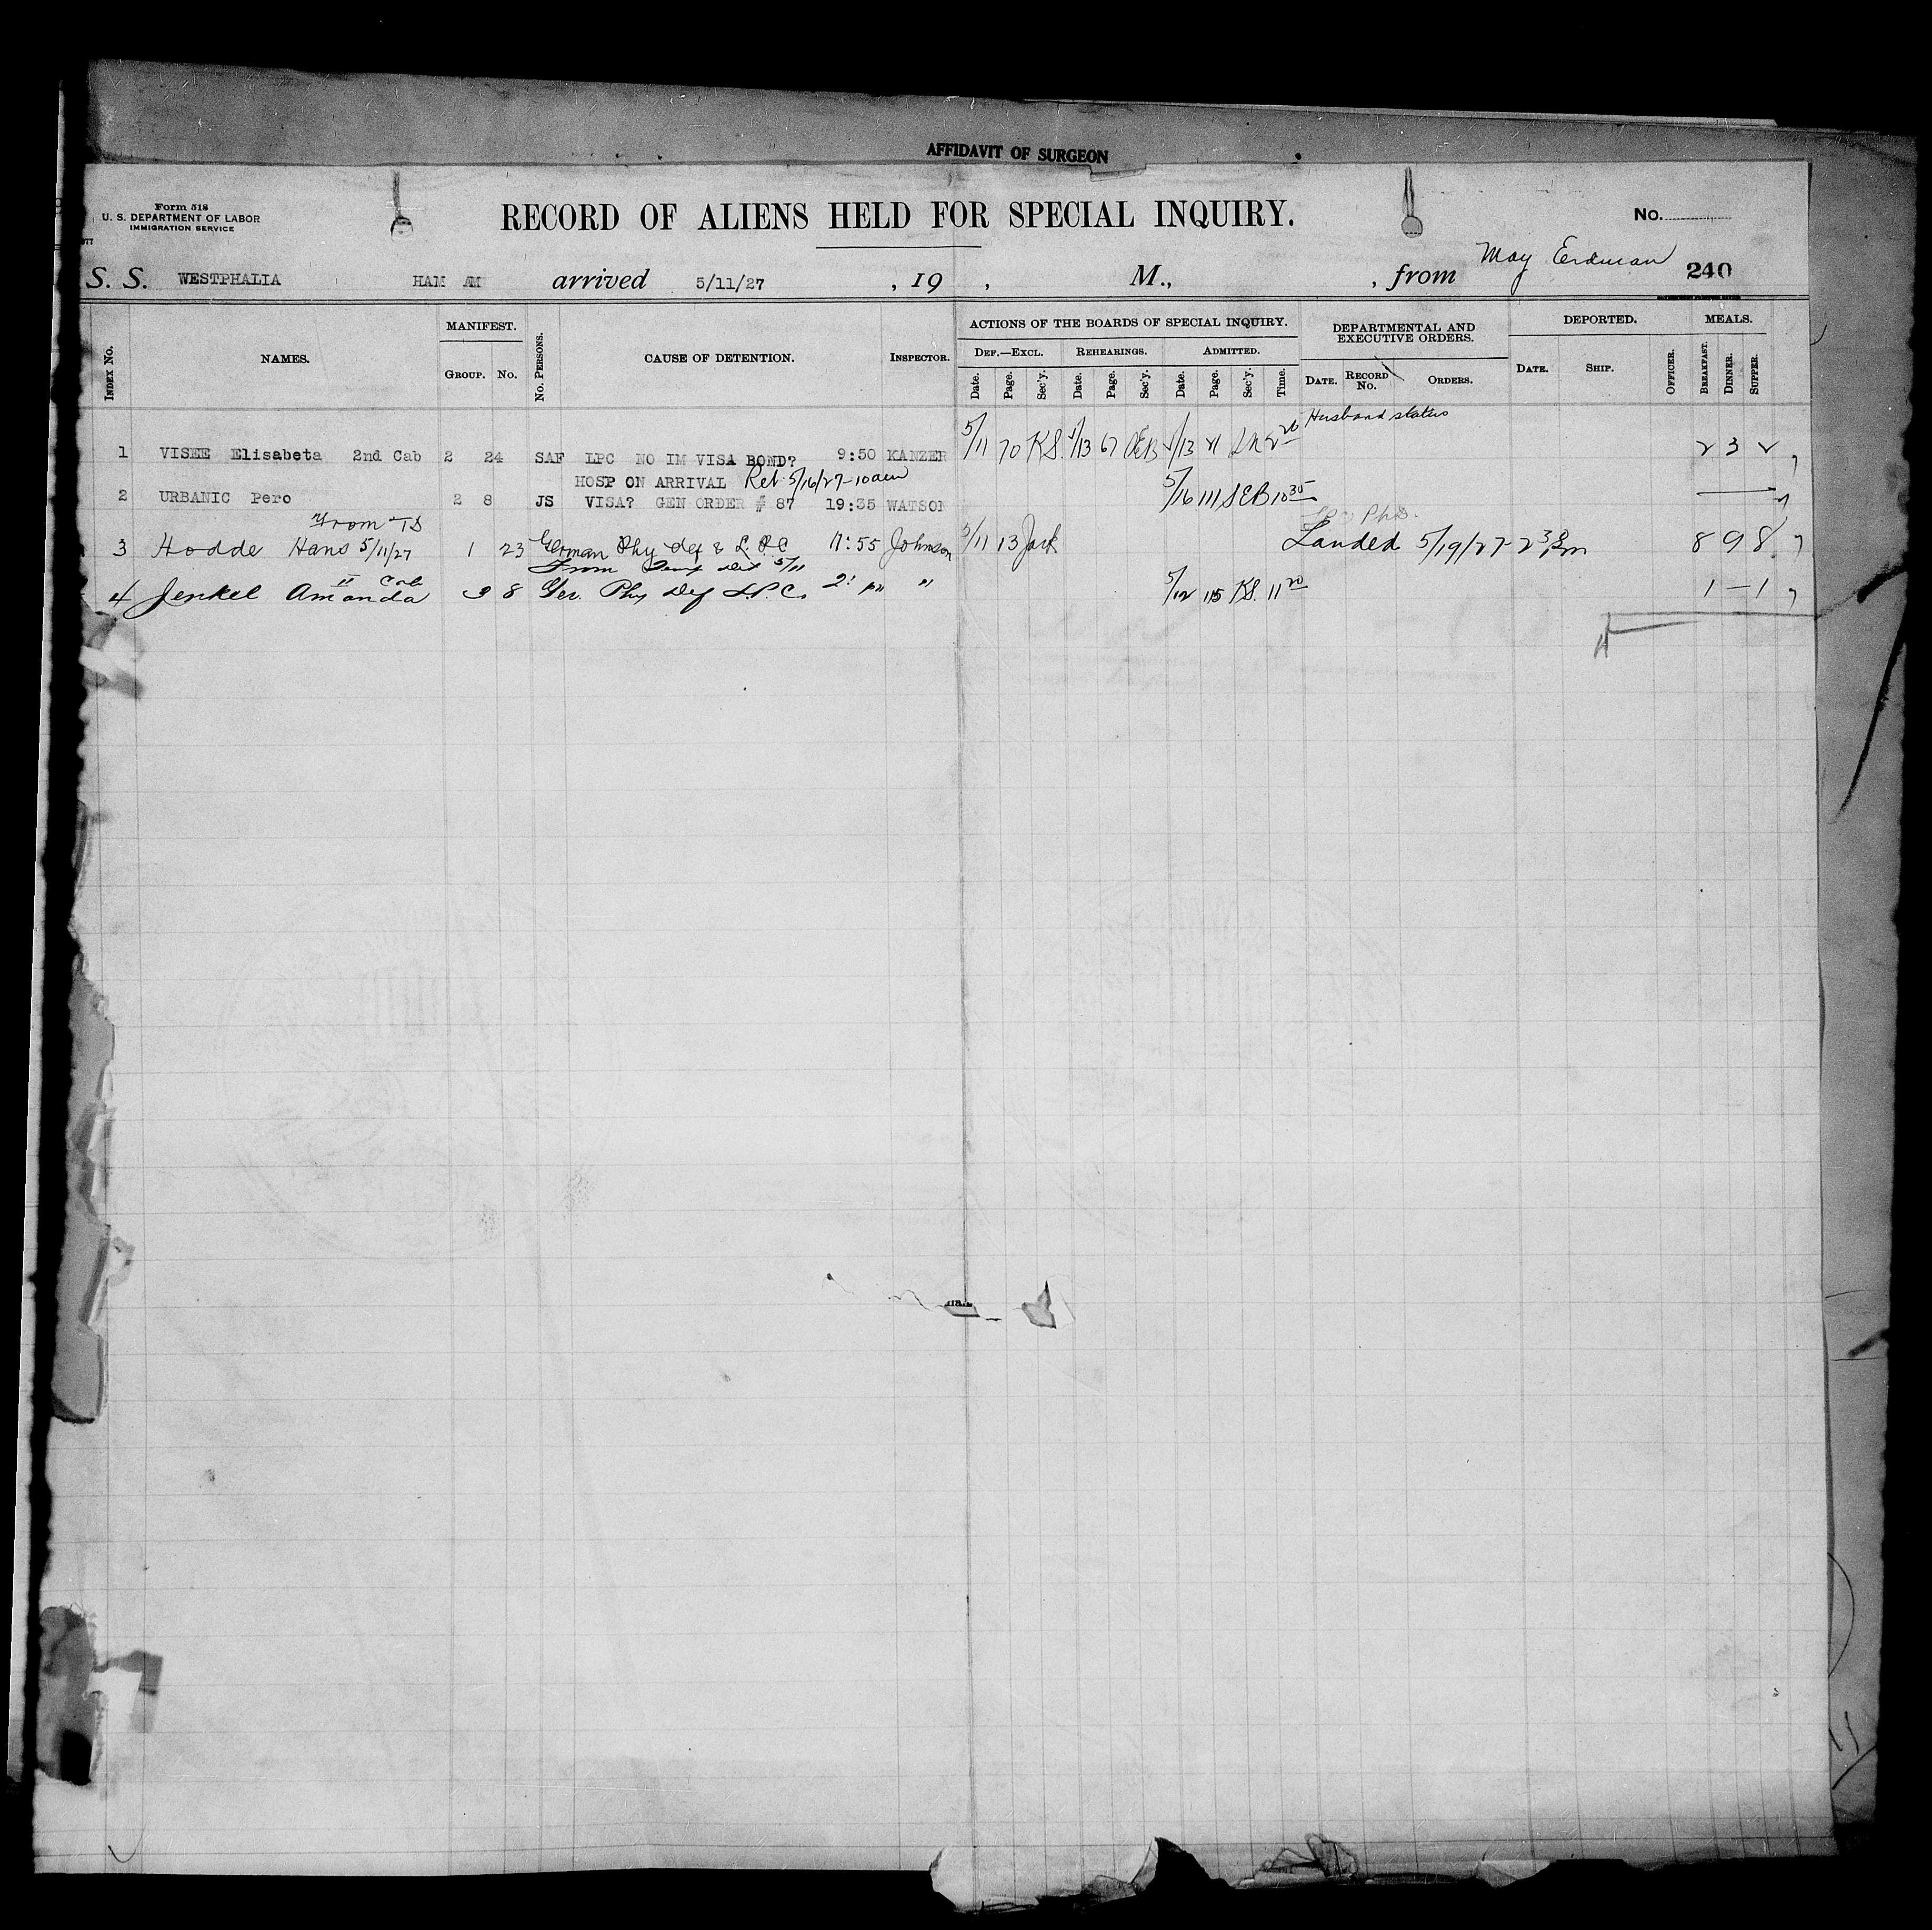 AFFIDAVIT OF SURGEON
Form 518
U. S. DEPARTMENT OF LABOR
IMMIGRATION SERVICE
RECORD OF ALIENS HELD FOR SPECIAL INQUIRY.
No.
May Erdman
S. S. WESTPHALIA HAM AM arrived 5/11/27 , 19 , M., , from 240
INDEX No. NAMES. MANIFEST. No. PERSONS. CAUSE OF DETENTION. INSPECTOR. ACTIONS OF THE BOARDS OF SPECIAL INQUIRY. DEPARTMENTAL AND EXECUTIVE ORDERS. DEPORTED. MEALS.
GROUP. No. DEF.—EXCL. REHEARINGS. ADMITTED. DATE. RECORD No. ORDERS. DATE. SHIP. OFFICER. BREAKFAST. DINNER. SUPPER.
Date. Page. Sec'y. Date. Page. Sec'y. Date. Page. Sec'y. Time.
Husband status
1 VISEE Elisabeta 2nd Cab 2 24 SAF LPC NO IM VISA BOND? 9:50 KANZER 5/11 70 KS. 5/13 67 5/13 2 20 2 3 2
HOSP ON ARRIVAL Ret 5/16/27-10am
2 URBANIC Pero 2 8 JS VISA? GEN ORDER # 87 19:35 WATSON 5/16 111 SEB 10 35
From TS
3 Hodde Hans 5/11/27 1 23 German Phy def & L.P.C 11:55 Johnson 5/11 13 Landed 5/19/27- 8 9 8
II Cab From 5/11
4 Jenkel Amanda 8 Ger. Phy Def L.P.C. " 5/12 115 KS. 11 20 1 — 1